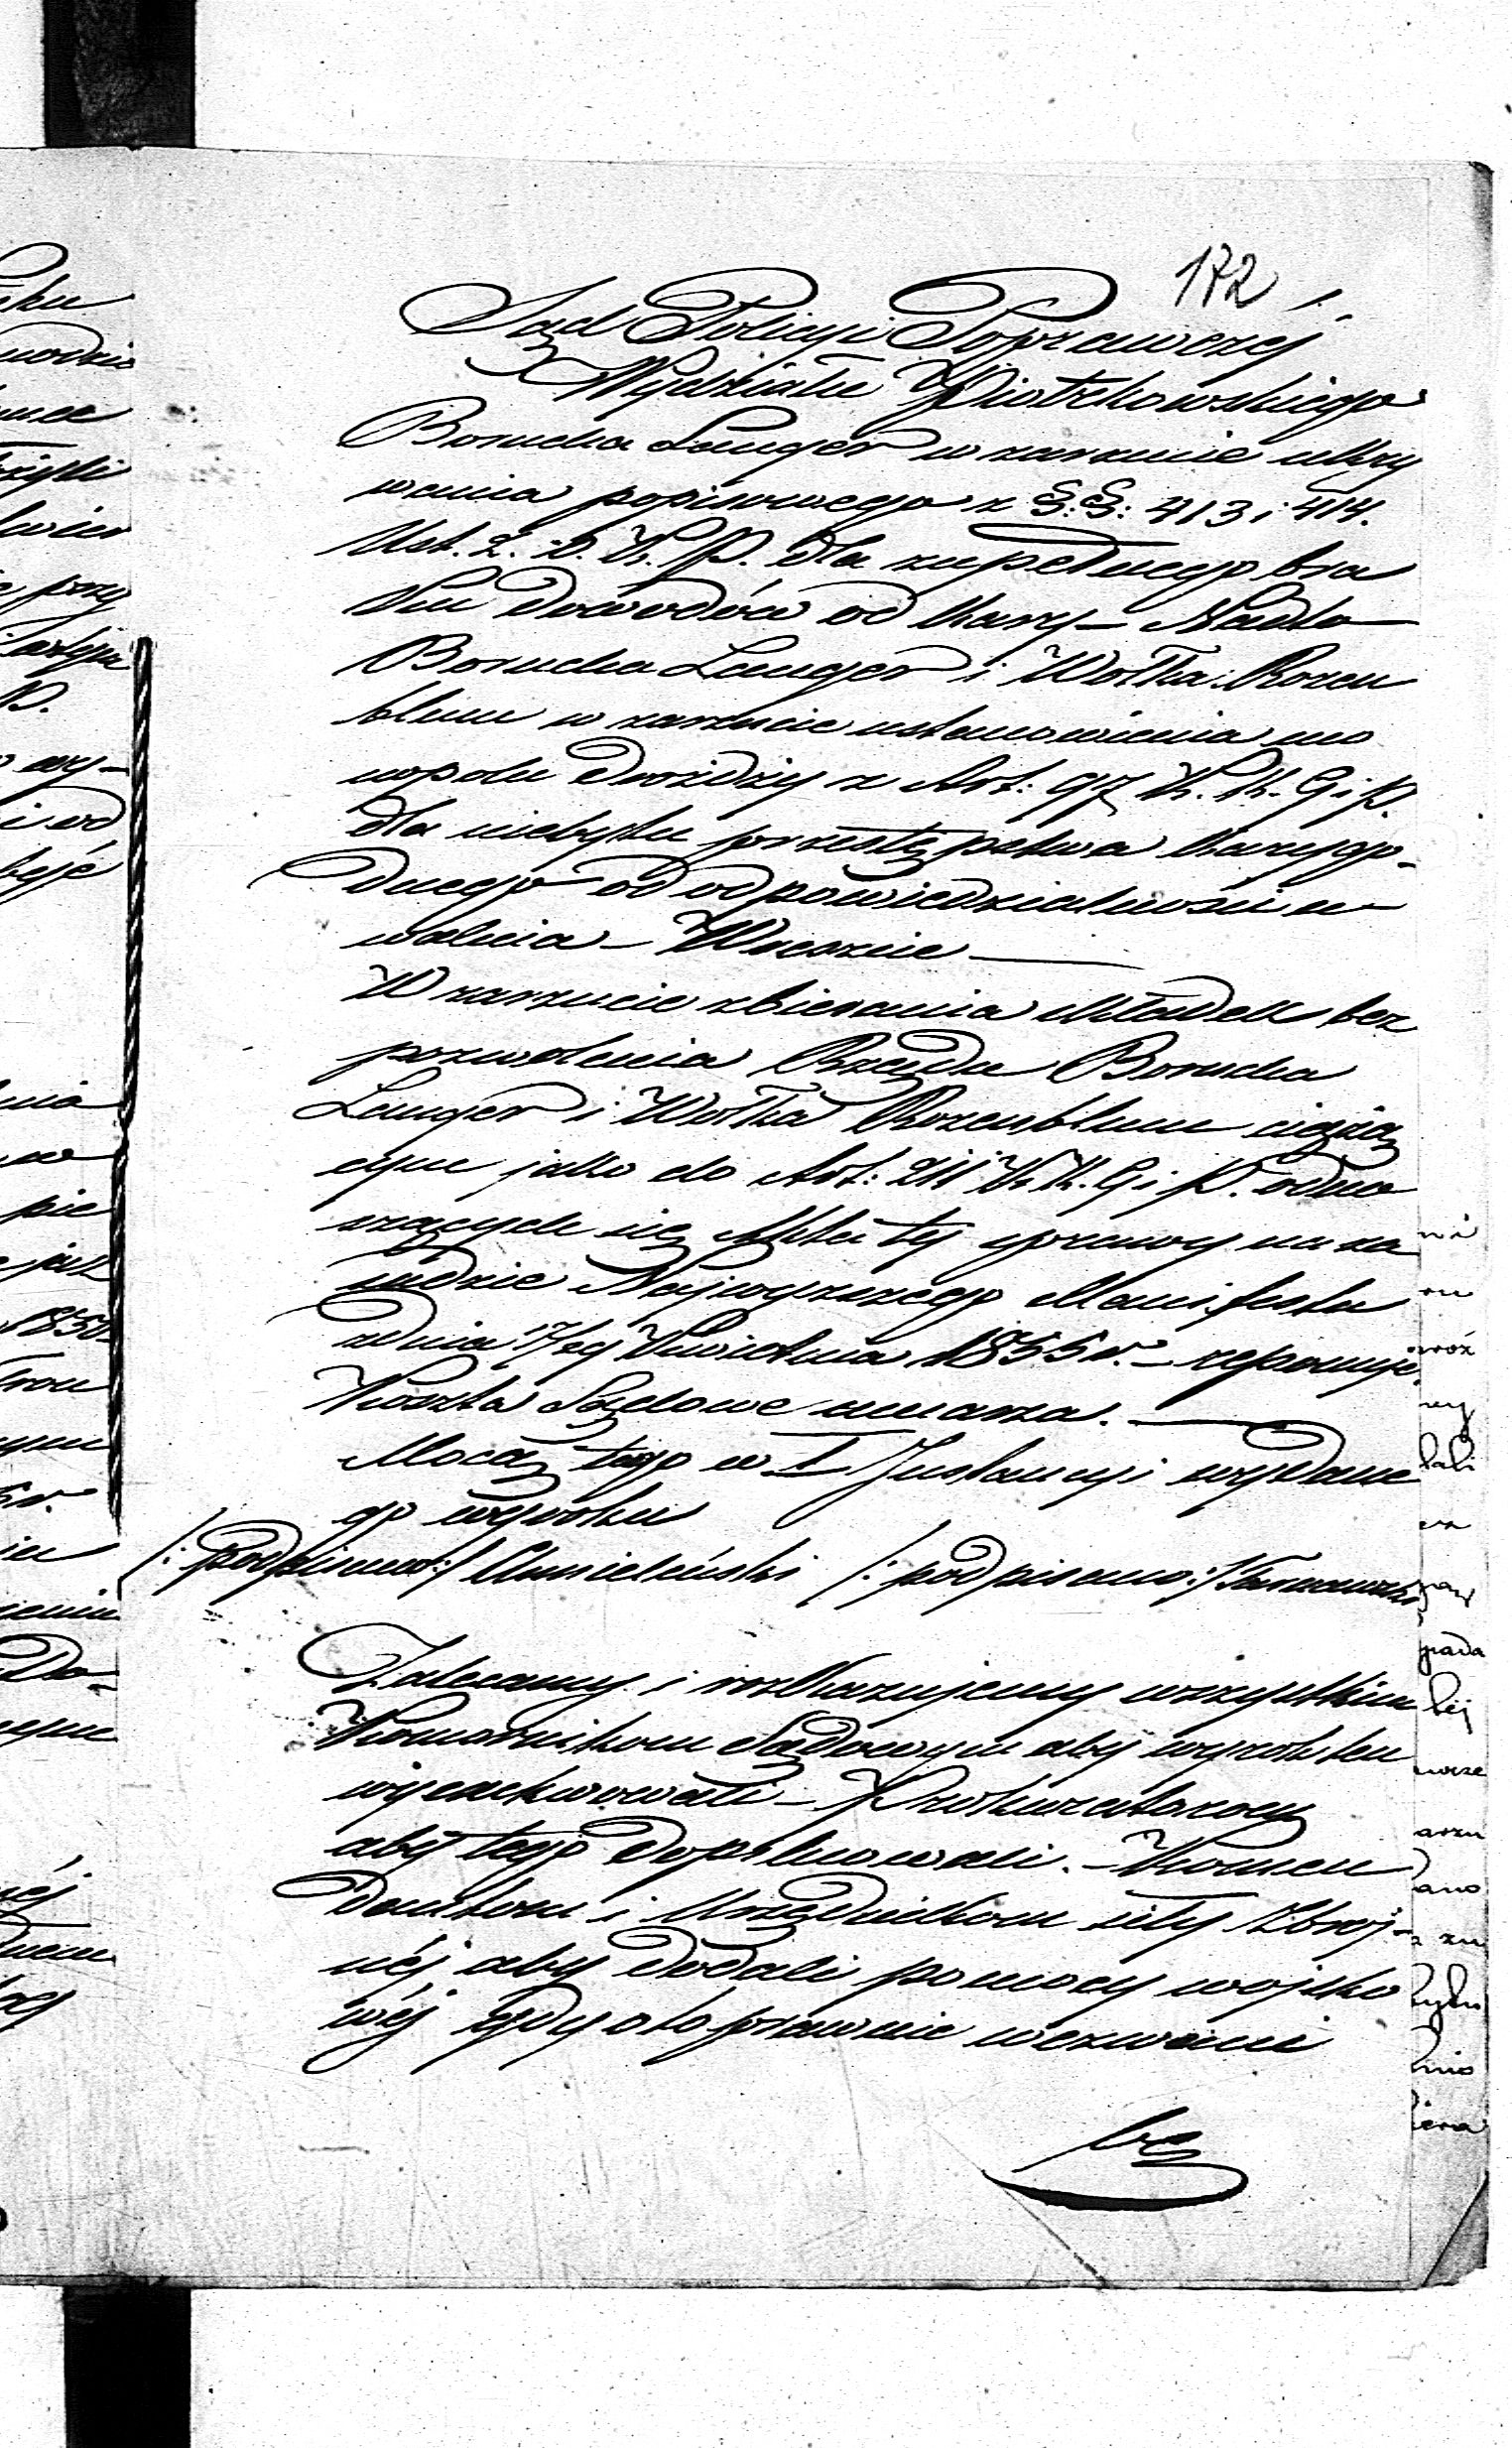 172
Sąd Policyi Poprawczej
Wydziału Piotrkowskiego
Borucha Langer w zarzucie ukry
wania popisowego z §.§: 413 i 414.
Ust. 2. D. K. P. dla zupełnego bra
ku dowodów od kary – Nadto
Borucha Langer i Wolka Rozen
blum w zarzucie ustanowienia mo
nopolu drożdży z Art: 917 K. K. G i P.
dla niebytu przestępstwa karygo-
dnego od odpowiedzialności u-
walnia – Wreszcie
W zarzucie zbierania składek bez
pozwolenia Rządu Borucha
Langer i Wolka Rozenblum ciążą
cym jako do Art: 211 K. K. G i P. odno
szących się skutki sprawy na za
sadzie Najwyższego Manifestu
z dnia 17 Kwietnia 1855 r. – reponuje.
Koszta Sądowe umarza.
Mocą tego w I Instancyi wydane
go wyroku
/: podpisano :/ Chmieleński /: podpisano :/
Zalecamy i rozkazujemy wszystkim
Komornikom Sądowym aby wyrok ten
wyexekwowali – Prokuratorom
aby tego dopilnowali. – Komen
dantom i Urzędnikom siły zbroj-
néj aby dodali pomocy wojsko
wéj gdy o to prawnie wezwani
bę